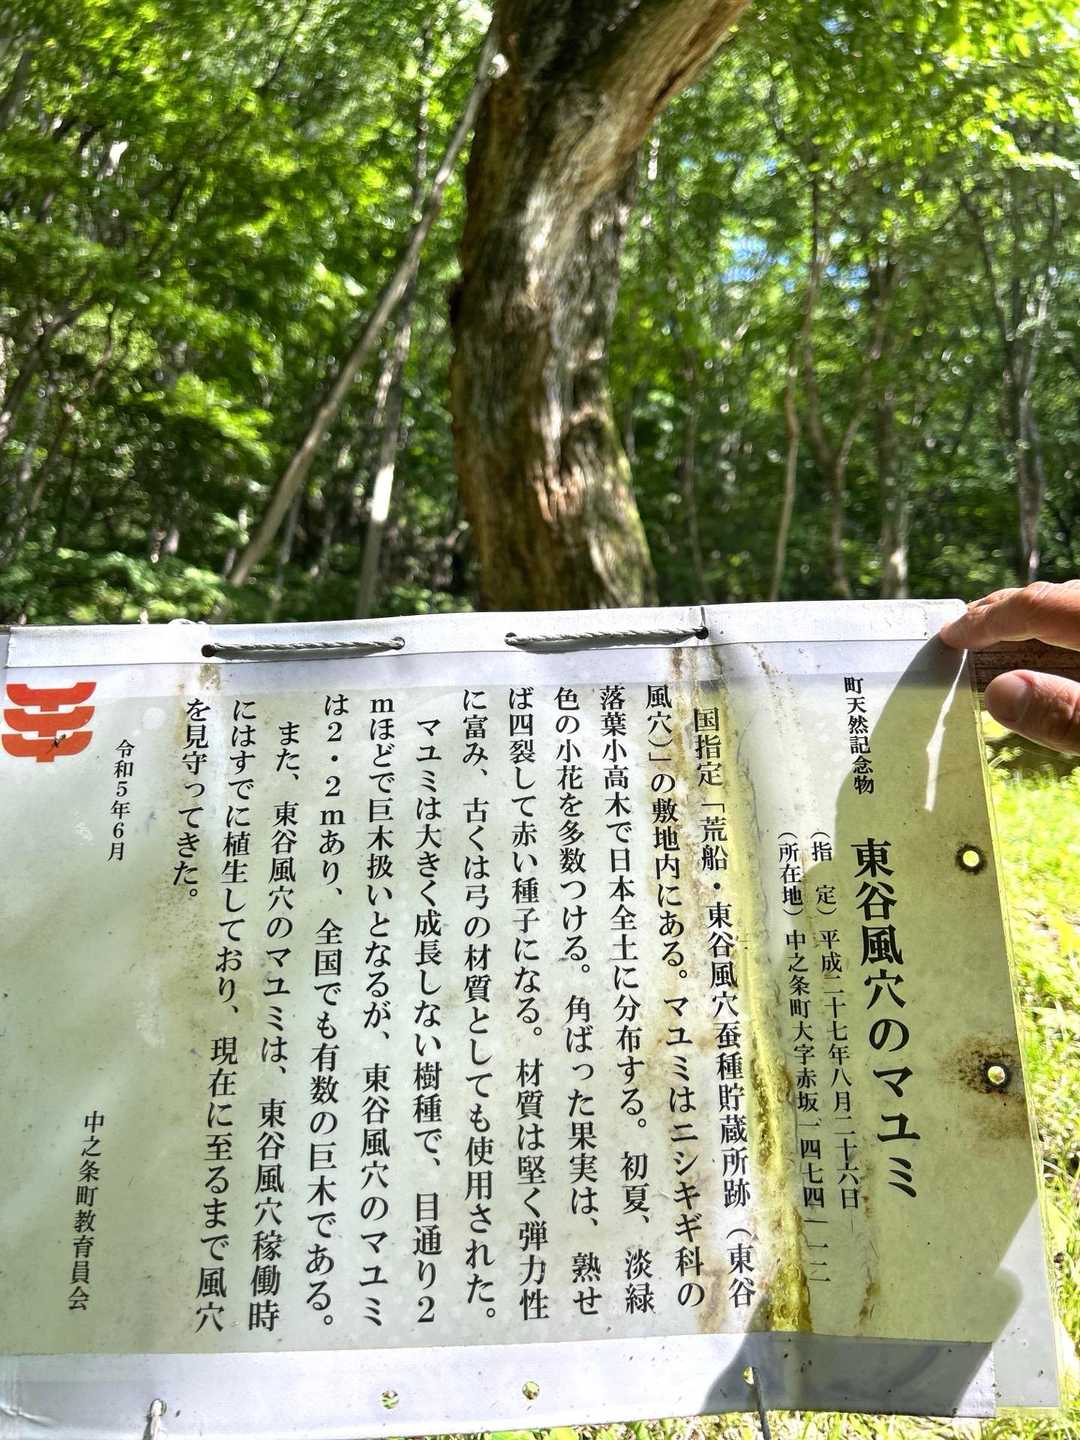 町天然記念物
東谷風穴のマユミ
（指　定）平成二十七年八月二十六日
（所在地）中之条町大字赤坂一四七四―一二
国指定「荒船・東谷風穴蚕種貯蔵所跡（東谷
風穴）」の敷地内にある。マユミはニシキギ科の
落葉小高木で日本全土に分布する。初夏、淡緑
色の小花を多数つける。角ばった果実は、熟せ
ば四裂して赤い種子になる。材質は堅く弾力性
に富み、古くは弓の材質としても使用された。
マユミは大きく成長しない樹種で、目通り２
ｍほどで巨木扱いとなるが、東谷風穴のマユミ
は２・２ｍあり、全国でも有数の巨木である。
また、東谷風穴のマユミは、東谷風穴稼働時
にはすでに植生しており、現在に至るまで風穴
を見守ってきた。
令和５年６月
中之条町教育員会